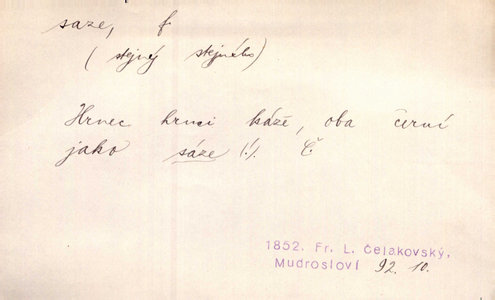 saze, f
(stejný stejného)
Hrnec hrnci káže, oba černí
jako sáze (!). Č
1852. Fr. L. Čelakovský,
Mudrosloví 92. 10.